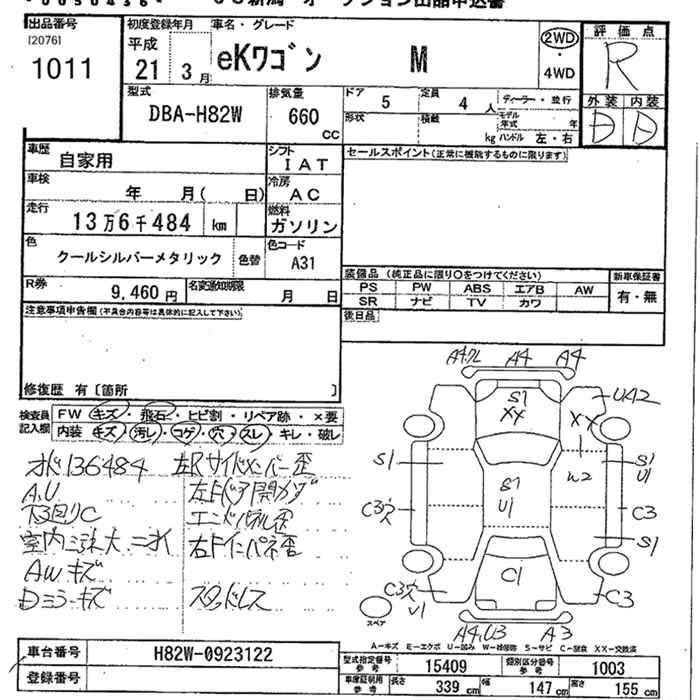 出品番号
[2076]
1011
初度登録年月
平成
21 3月
車名・グレード
eKワゴン M
2WD
・
4WD
評価点
R
外装 内装
D D
型式
DBA-H82W
排気量
660
cc
ドア 5
定員 4 人
ディーラー・並行
形状
積載 kg
モデル年式 年
ハンドル 左・右
車歴
自家用
シフト
IAT
セールスポイント(正常に機能するものに限ります)
車検
年 月( 日)
冷房
AC
走行
13万6千484 km
燃料
ガソリン
色
クールシルバーメタリック
色替
色コード
A31
装備品 (純正品に限り○をつけてください)
新車保証書
PS PW ABS エアB AW
SR ナビ TV カワ
有・無
R券
9,460 円
名変通知期限
月 日
後日品
注意事項申告欄(不具合内容等は具体的に記入して下さい)
修復歴 有〔箇所 〕
検査員記入欄
FW キズ・飛石・ヒビ割・リペア跡・×要
内装 キズ・汚レ・コゲ・穴・スレ・キレ・破レ
136484 左Rサイドメンバー歪
A,U
下回りC
エンドパネル歪
右Fインパネ歪
AWキズ
Dミラーキズ
スタッドレス
A4 A4
S1
XX
U42
XX
S1
W2
S1
U1
S1
U1
C3穴
C3
S1
C1
C3穴
U1
C3
A4,U3 A3
スペア
A-キズ E-エクボ U-凹み W-補修跡 S-サビ C-腐食 XX-交換済
車台番号
H82W-0923122
登録番号
型式指定番号
参考
15409
類別区分番号
参考
1003
車庫証明用
参考
長さ 339 cm
幅 147 cm
高さ 155 cm